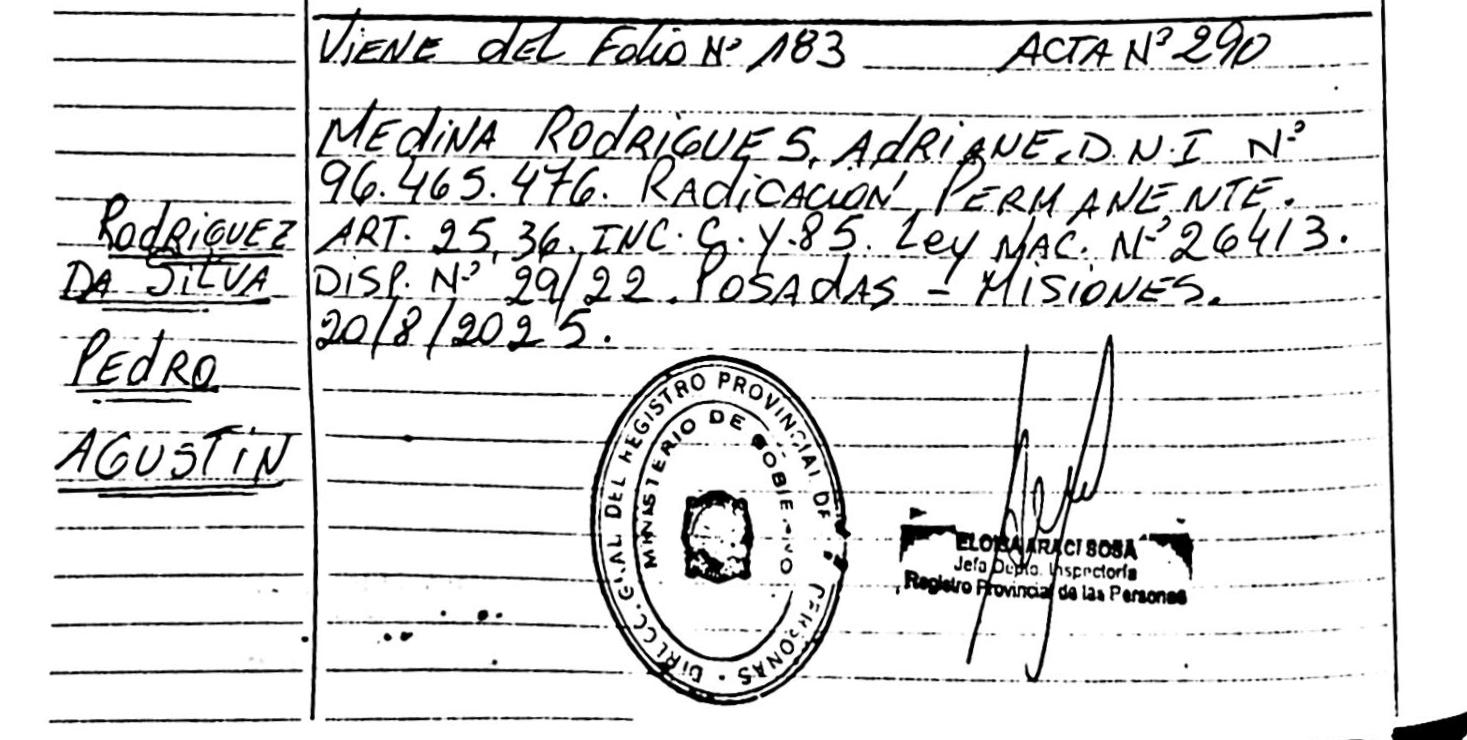 VIENE dEL Folio Nº 183 ACTA Nº 290
MEdiNA RODRIGUES, AdRIANE. D.N.I Nº
96.465.476. RADICACIÓN PERMANENTE.
ART. 25, 36. INC. C. Y. 85. Ley NAC. Nº 26413.
DISP. Nº 29/22. POSADAS - MISIONES.
20/8/2025.
RodRiGUEZ
DA SILVA
PEdRO
AGUSTÍN
DIRECC. GRAL. DEL REGISTRO PROVINCIAL DE PERSONAS
MINISTERIO DE GOBIERNO
ELOISA ARACI SOSA
Jefa Depto. Inspectoría
Registro Provincial de las Personas